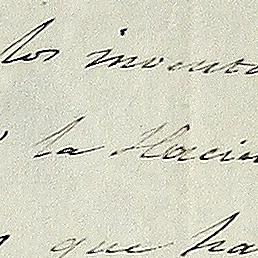 los invent
la Hacien
que ha